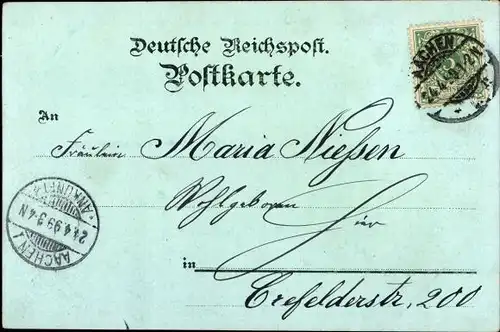 Deutsche Reichspost.
Postkarte.
An
Fräulein Maria Nießen
Wohlgeboren
Hier
in
Crefelderstr. 200
AACHEN
AACHEN 1
24.4.99 3-4 N
ANKUNFT